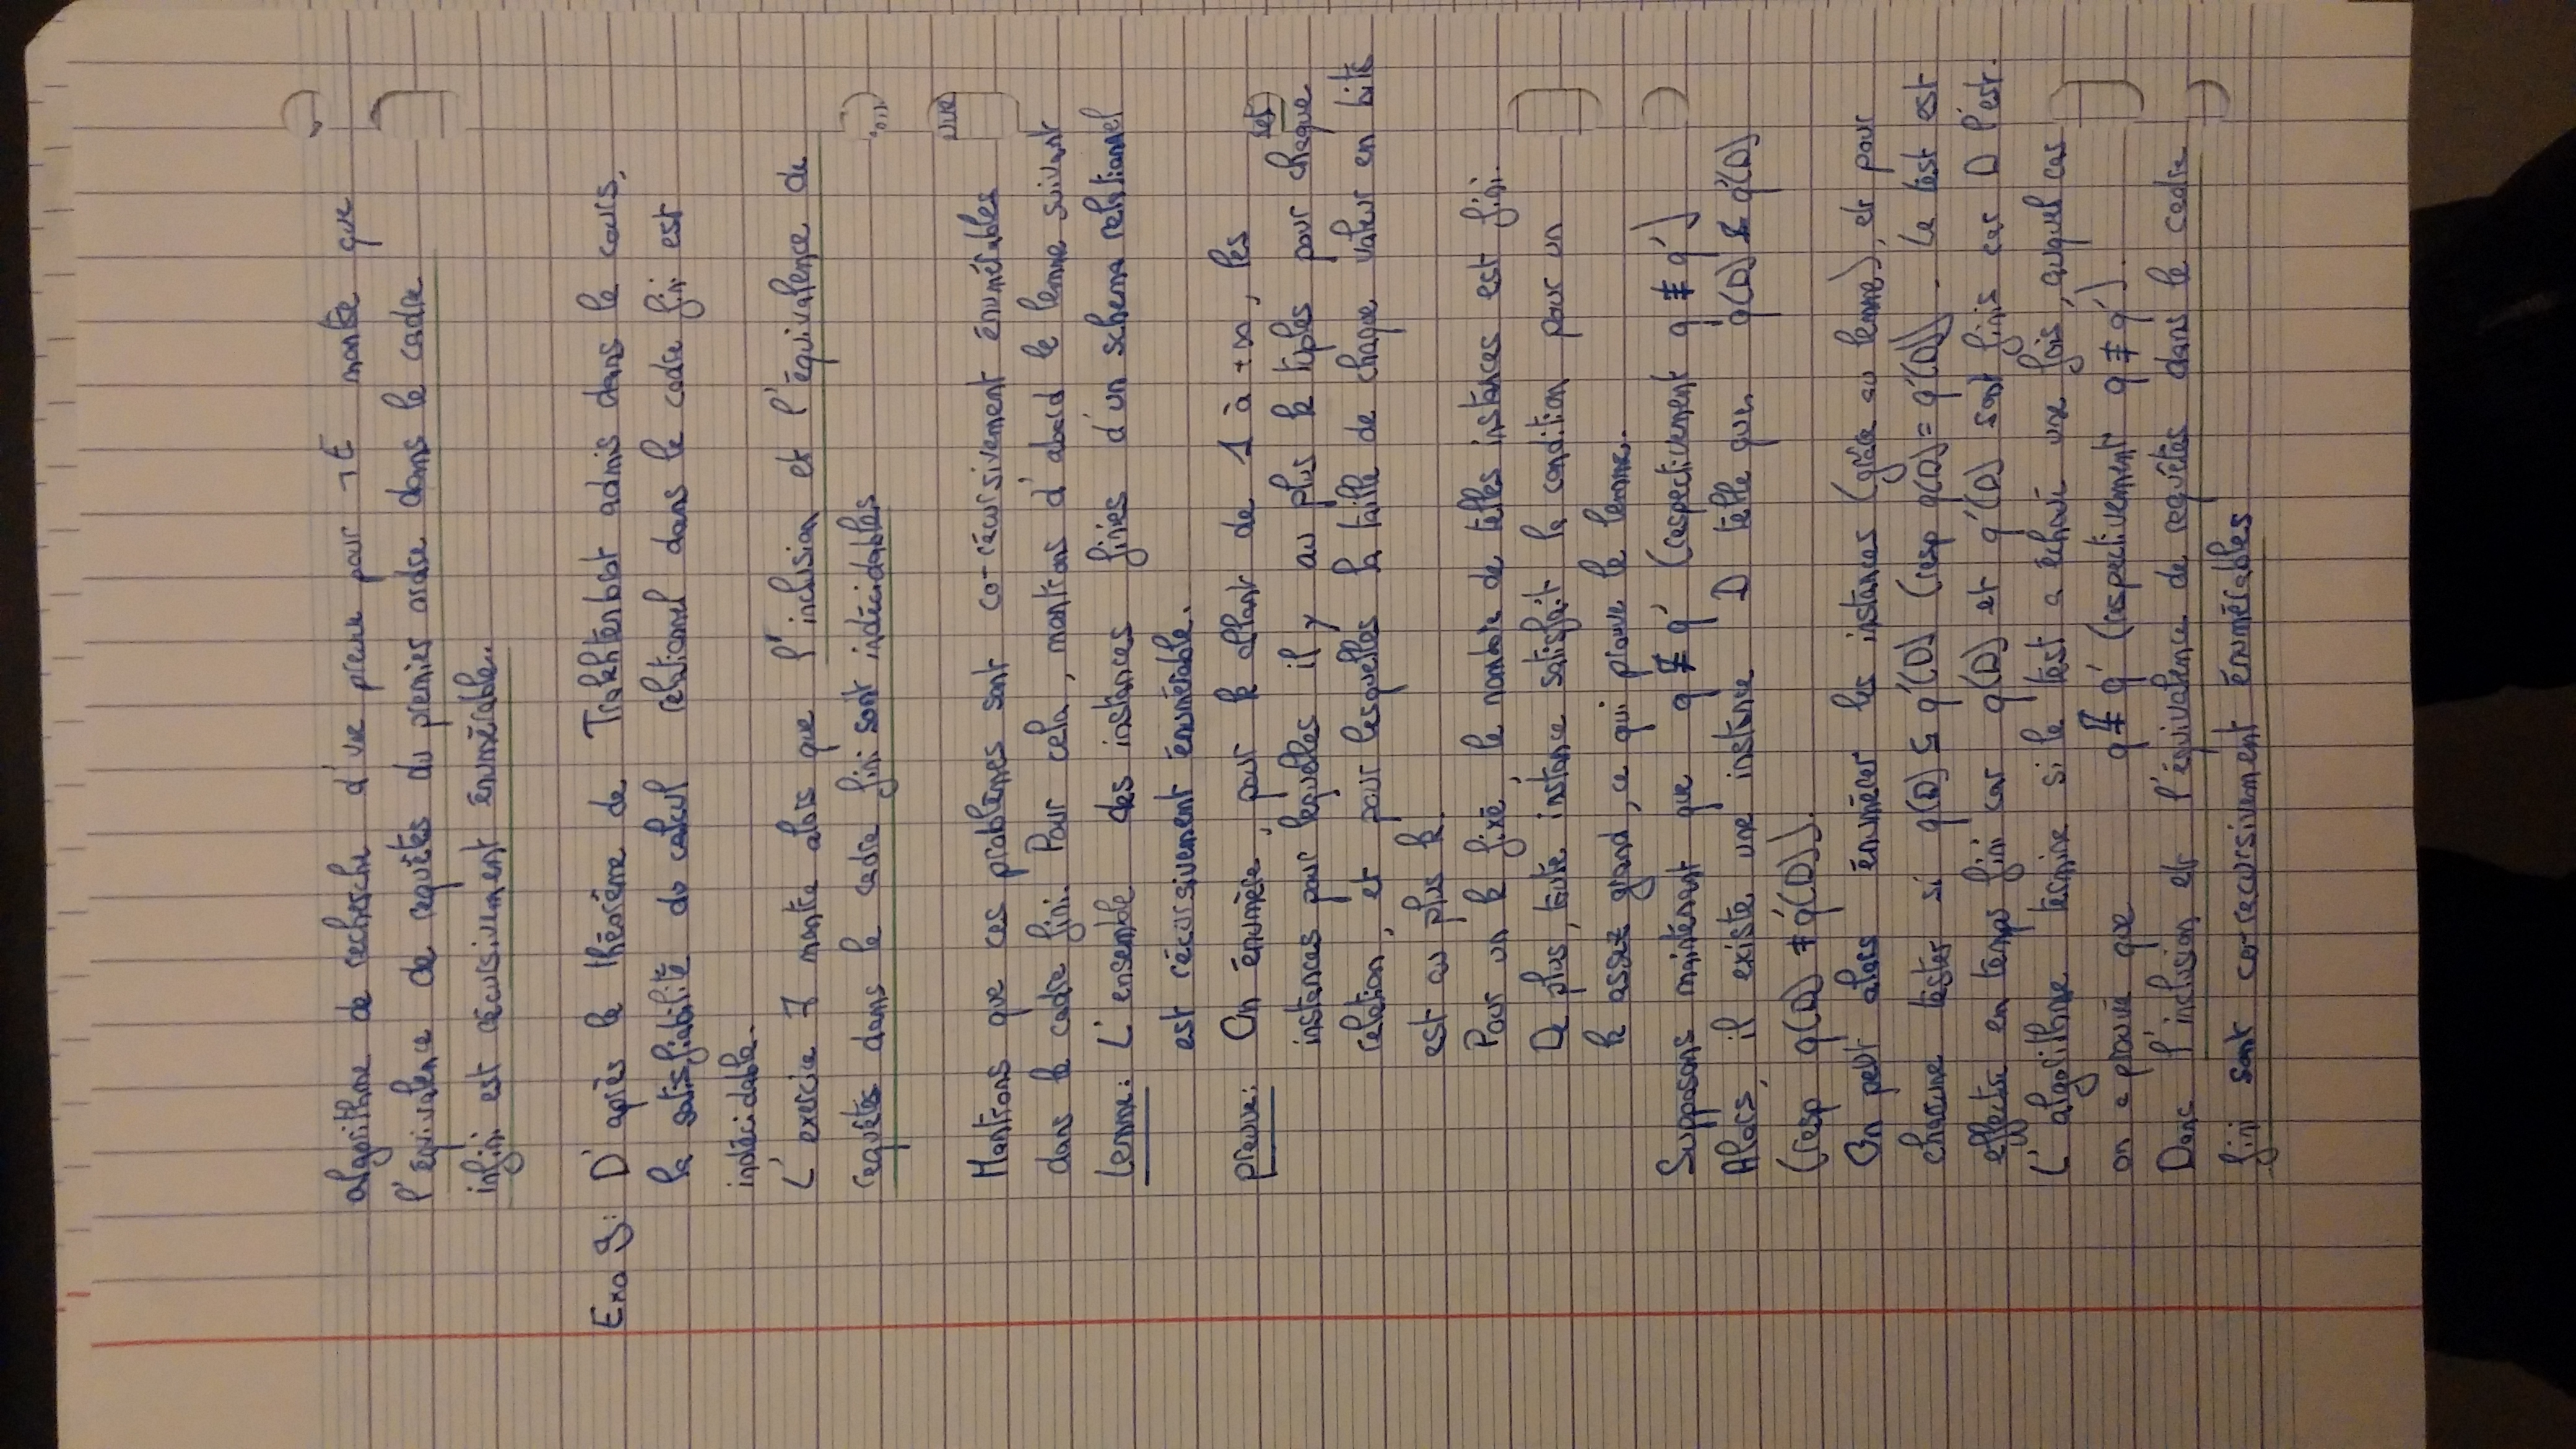 algorithme de recherche d'une preuve pour ¬E montre que
l'équivalence de requêtes du premier ordre dans le cadre
infini est récursivement énumérable.
Exo 9: D'après le théorème de Trakhtenbrot admis dans le cours,
la satisfiabilité du calcul relationnel dans le cadre fini est
indécidable.
L'exercice 7 montre alors que l'inclusion et l'équivalence de
requêtes dans le cadre fini sont indécidables
Montrons que ces problèmes sont co-récursivement énumérables
dans le cadre fini. Pour cela, montrons d'abord le lemme suivant
Lemme: L'ensemble des instances finies d'un schema relationnel
est récursivement énumérable.
preuve: On énumère, pour k allant de 1 à +∞, les
instances pour lequelles il y au plus k tuples pour chaque
relation, et pour lesquelles la taille de chaque valeur en bits
est au plus k.
Pour un k fixé, le nombre de telles instances est fini.
De plus, toute instance satisfait la condition pour un
k assez grand, ce qui prouve le lemme.
Supposons maintenant que q ⊈ q' (respectivement q ≢ q')
Alors, il existe une instance D telle que q(D) ⊈ q'(D)
(resp q(D) ≠ q'(D)).
On peut alors énumérer les instances (grâce au lemme), et pour
chacune tester si q(D) ⊆ q'(D) (resp q(D) = q'(D)). Le test est
effectué en temps fini car q(D) et q'(D) sont finis car D l'est.
L'algorithme termine si le test a échoué une fois, auquel cas
on a prouvé que q ⊈ q' (respectivement q ≢ q').
Donc l'inclusion et l'équivalence de requêtes dans le cadre
fini sont co-recursivement énumérables